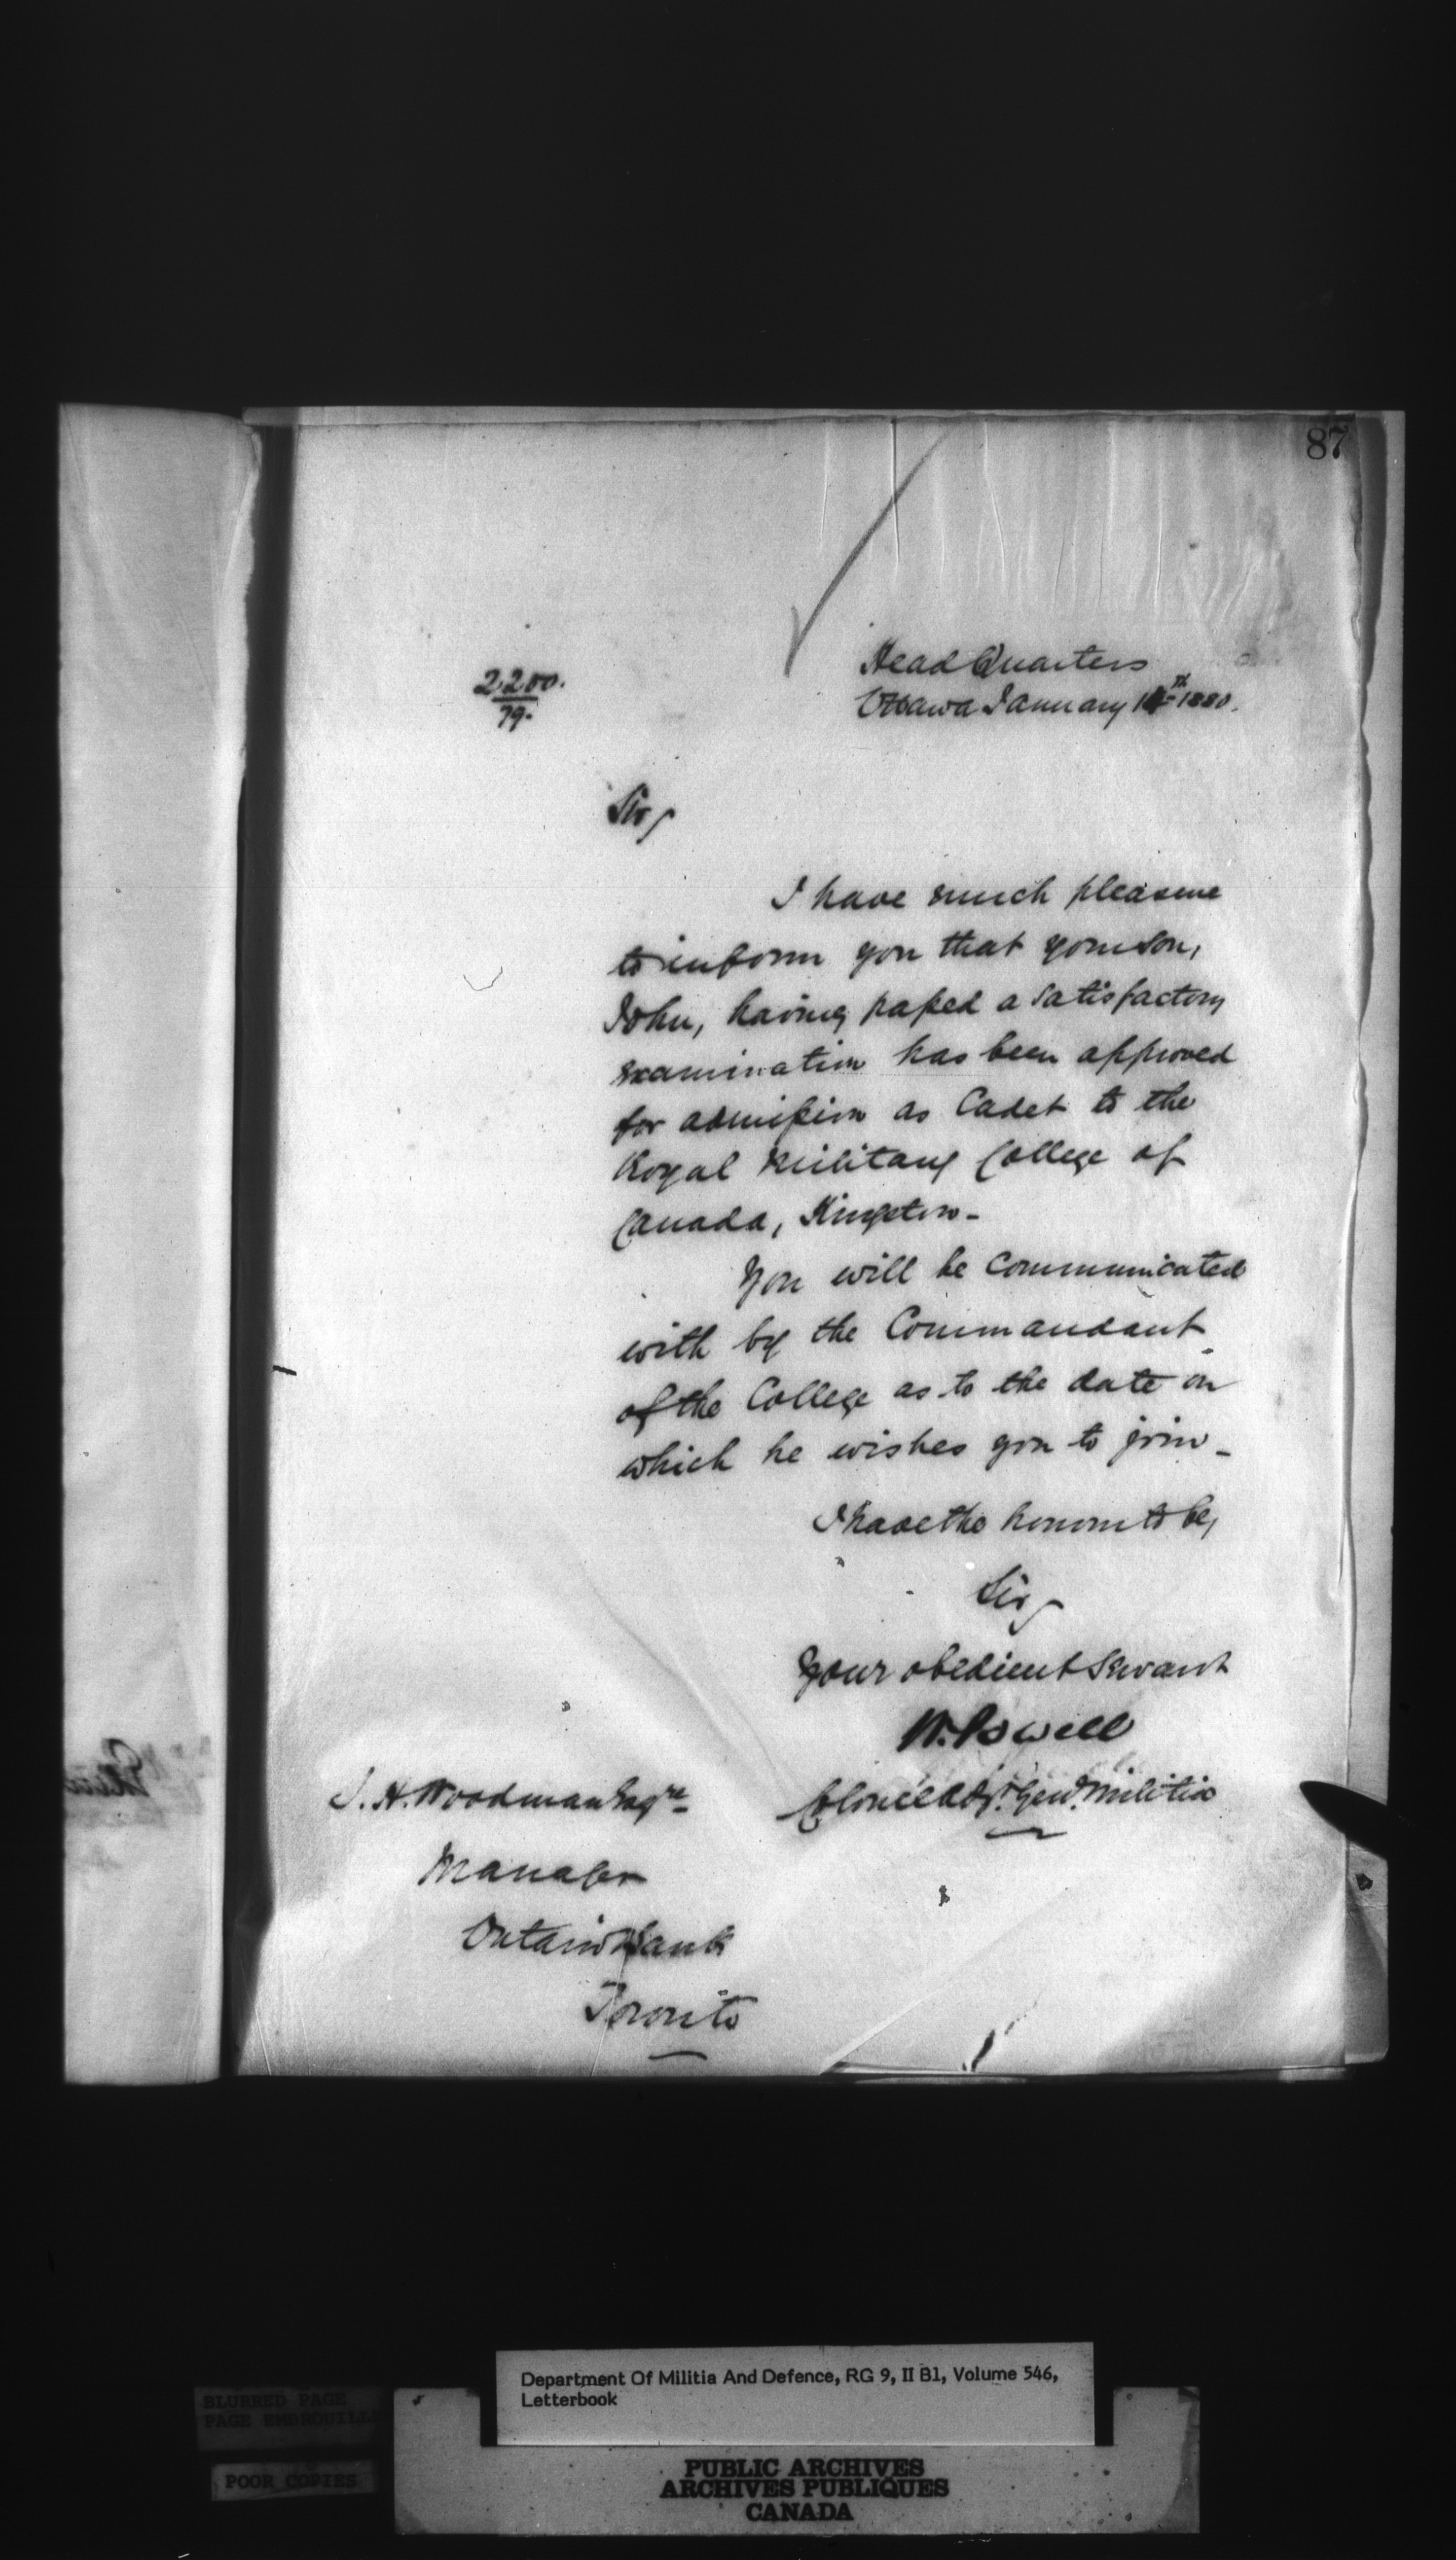 87
2200.
79.
Head Quarters
Ottawa January 14th 1880.
Sir,
I have much pleasure
to inform you that your son,
John, having passed a satisfactory
examination has been approved
for admission as Cadet to the
Royal Military College of
Canada, Kingston-
You will be communicated
with by the Commandant
of the College as to the date on
which he wishes you to join-
I have the honour to be,
Sir,
Your obedient Servant
W. Powell
Colonel Adjt. Genl. Militia
J. H. Woodman Esqre
Manager
Ontario Bank
Toronto
Department Of Militia And Defence, RG 9, II B1, Volume 546,
Letterbook
BLURRED PAGE
PAGE EMBROUILL
POOR COPIES
PUBLIC ARCHIVES
ARCHIVES PUBLIQUES
CANADA